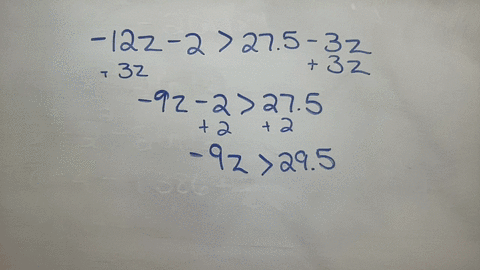 -12z - 2 > 27.5 - 3z
+ 3z + 3z
-9z - 2 > 27.5
+ 2 + 2
-9z > 29.5